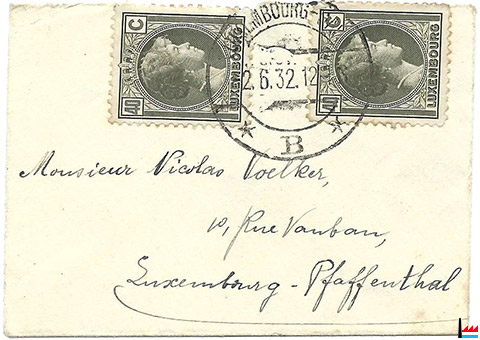 40 C LUXEMBOURG
40 C LUXEMBOURG
2.6.32.12
B
Monsieur Nicolas Voelker,
10, Rue Vauban,
Luxembourg - Pfaffenthal